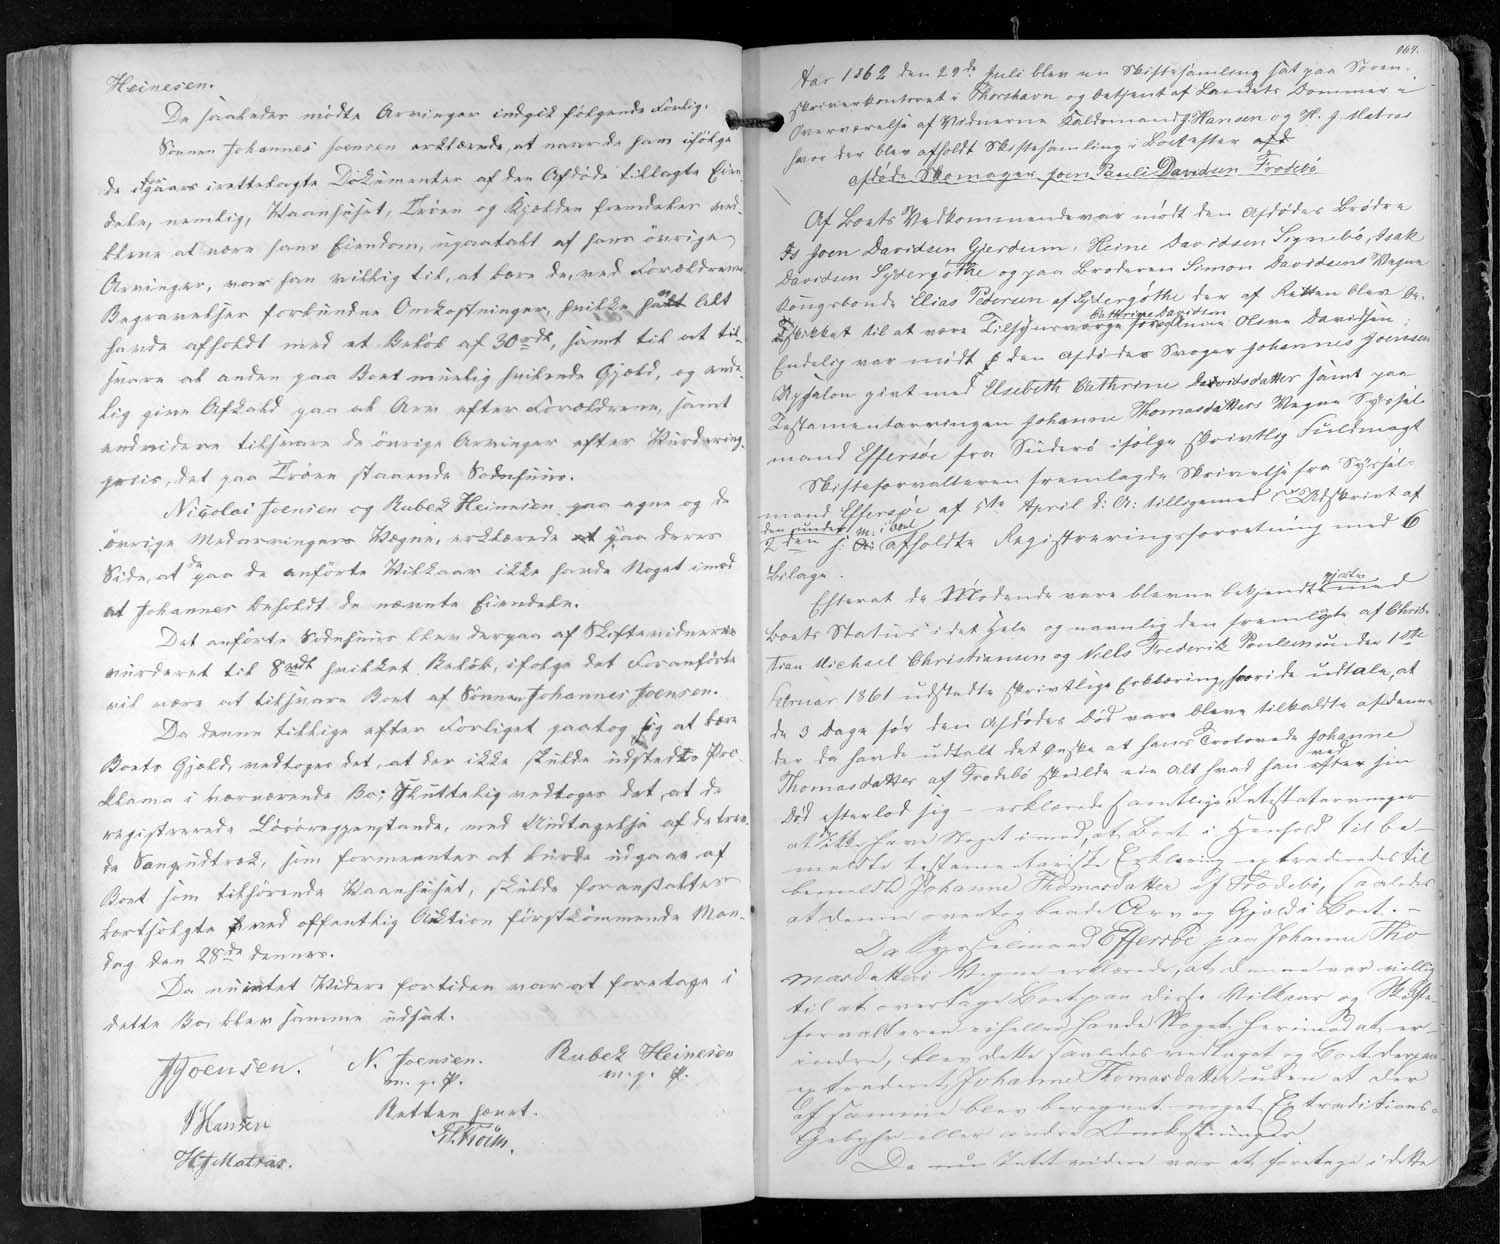 Heinesen.
Da saaledes mödte Arvinger indgik følgende Forlig.
Sönnen Johannes Joensen erklærede, at naar de ham ifölge
de igaars irettelagte Dokumenter af den Afdöde tillagte Eien-
dele, nemlig, Vaanhuset, Tröen og Kjælden fremdeles ved-
bleve at være hans Eiendom, upaatalt af hans övrige
Arvinger, var han villig til, at bære de, ved Forældrenes
Begravelser forbundne Omkostninger, hvilke han alt
havde afholdt med et Belöb af 30 rdl, samt til at til-
svare al anden paa Boet muelig hvilende Gjæld, og ende-
lig give Afkald paa al Arv efter Forældrene, samt
endvidere tilsvare de övrige Arvinger efter Vurderings-
priis, det paa Tröen staaende Sodnhuus.
Nicolai Joensen og Rubek Heinesen paa egne og de
övrige Medarvingers Vegne, erklærede at paa deres
Side, at de paa de anförte Vilkaar ikke havde Noget imod
at Johannes beholdt de nævnte Eiendele.
Det anförte Sodnhuus blev derpaa af Skiftevidnerne
vurderet til 8 rdl hvilket Belöb, ifølge det Foranförte
vil være at tilsvare Boet af Sönnen Johannes Joensen.
Da denne tillige efter Forliget paatog sig at bære
Boets Gjæld, vedtoges det, at der ikke skulde udstedes Pro-
klama i nærværende Bo; Sluttelig vedtoges det, at de
registrerede Lösöregjenstande, med Undtagelse af de tven-
de Sengudtræk, som formeentes at burde udgaae af
Boet som tilhörende Vaanhuset, skulde foranstaltes
bortsolgte ved offentlig Auktion förstkommende Man-
dag den 28de dennes.
Da nu intet Videre fortiden var at foretage i
dette Bo, blev samme udsat.
JJoensen. N. Joensen. Rubek Heinesen
m. p. P. m. p. P.
Retten hævet.
JHansen
HJMatras.
164.
Aar 1862 den 29de Juli blev en Skiftesamling sat paa Soren-
skriverkontoret i Thorshavn og betjent af Landets Dommer i
Overværelse af Vidnerne Kaldsmand J Hansen og H. J. Matras
hvor der blev afholdt Skiftesamling i Boet efter afd
afdöde Skomager Joen Pauli Davidsen Frodebö
Af Boets Vedkommende var mödt den Afdödes Brödre
Joen Davidsen Gjerdum, Heine Davidsen Signebö, Isak
Davidsen Sydergöthe og paa Broderen Simon Davidsens Vegne
Kongsbonde Elias Pedersen af Sydergöthe der af Retten blev be-
skikket til at være Tilsynsværge for Cathrine Davidsen Olsen Davidsen;
Endelig var mödt den Afdödes Svoger Johannes Joensen
givt med Elsebeth Cathrine Davidsdatter samt paa
Testamentarvingen Johanne Thomasdatters Vegne Syssel
mand Effersöe fra Suderö ifölge skrivtlig Fuldmagt
Skifteforvalteren fremlagde Skrivelse fra Syssel-
mand Effersöe af 5te April d: A: tilligemed Udskrivt af
den under 2den m. i Boet afholdte Registreringsforretning med 6
Bilage.
Efterat de Mödende vare blevne bekjendtgjorte med
Boets Status i det Hele og navnlig den fremlagte af Chris-
tian Michael Christiansen og Niels Frederik Poulsen under 1ste
Februar 1861 udstedte skrivtlige Erklæring, hvori de udtale, at
de 3 Dage för den Afdödes Död vare blevne tilkaldte af denne
der da havde udtalt det Ønske at hans Trolovede Johanne
Thomasdatter af Frodebö skulde eie Alt hvad han ved sin
Död efterlod sig – erklærede samtlige Intestatarvinger
at ikke have Noget imod, at Boet i Henhold til be-
meldte testamentariske Erklæring extraderedes til
bemeldte Johanne Thomasdatter af Frodebö, saaledes
at denne overtog baade Arv og Gjæld i Boet. –
Da Sysselmand Effersöe paa Johanne Tho-
masdatters Vegne erklærede, at denne var villig
til at overtage Boet paa disse Vilkaar og Skifte-
forvalteren ei heller havde Noget herimod at er-
indre, blev dette saaledes vedtaget og Boet derpaa
extraderet Johanne Thomasdatter uden at der
af samme blev beregnet noget Extraditions-
Gebyhr eller andre Omkostninger.
Da nu Intet videre var at foretage i dette